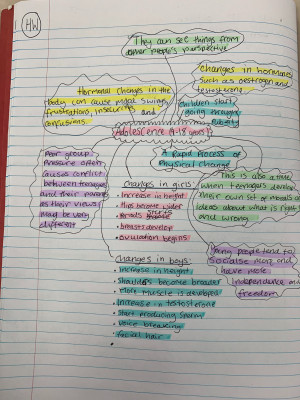 HW
They can see things from
other people's perspective
Changes in hormones
such as oestrogen and
testosterone
Hormonal changes in the
body can cause mood swings,
frustrations, insecurities and
confusions.
Children start
going through
puberty
Adolescence (9-18 years)
A Rapid Process of
Physical Change
Peer group
pressure often
causes conflict
between teenagers
and their parents
as their views
may be very
different
Changes in girls:
• Increase in height
• Hips become wider
• Periods start
• breasts develop
• ovulation begins
This is also a time
when teenagers develop
their own set of morals and
ideas about what is right
and wrong
Young people tend to
socialise more and
have more
independence and
freedom
Changes in boys:
• Increase in height
• Shoulders become broader
• More muscle is developed
• Increase in testosterone
• Start producing sperm
• Voice breaking
• facial hair